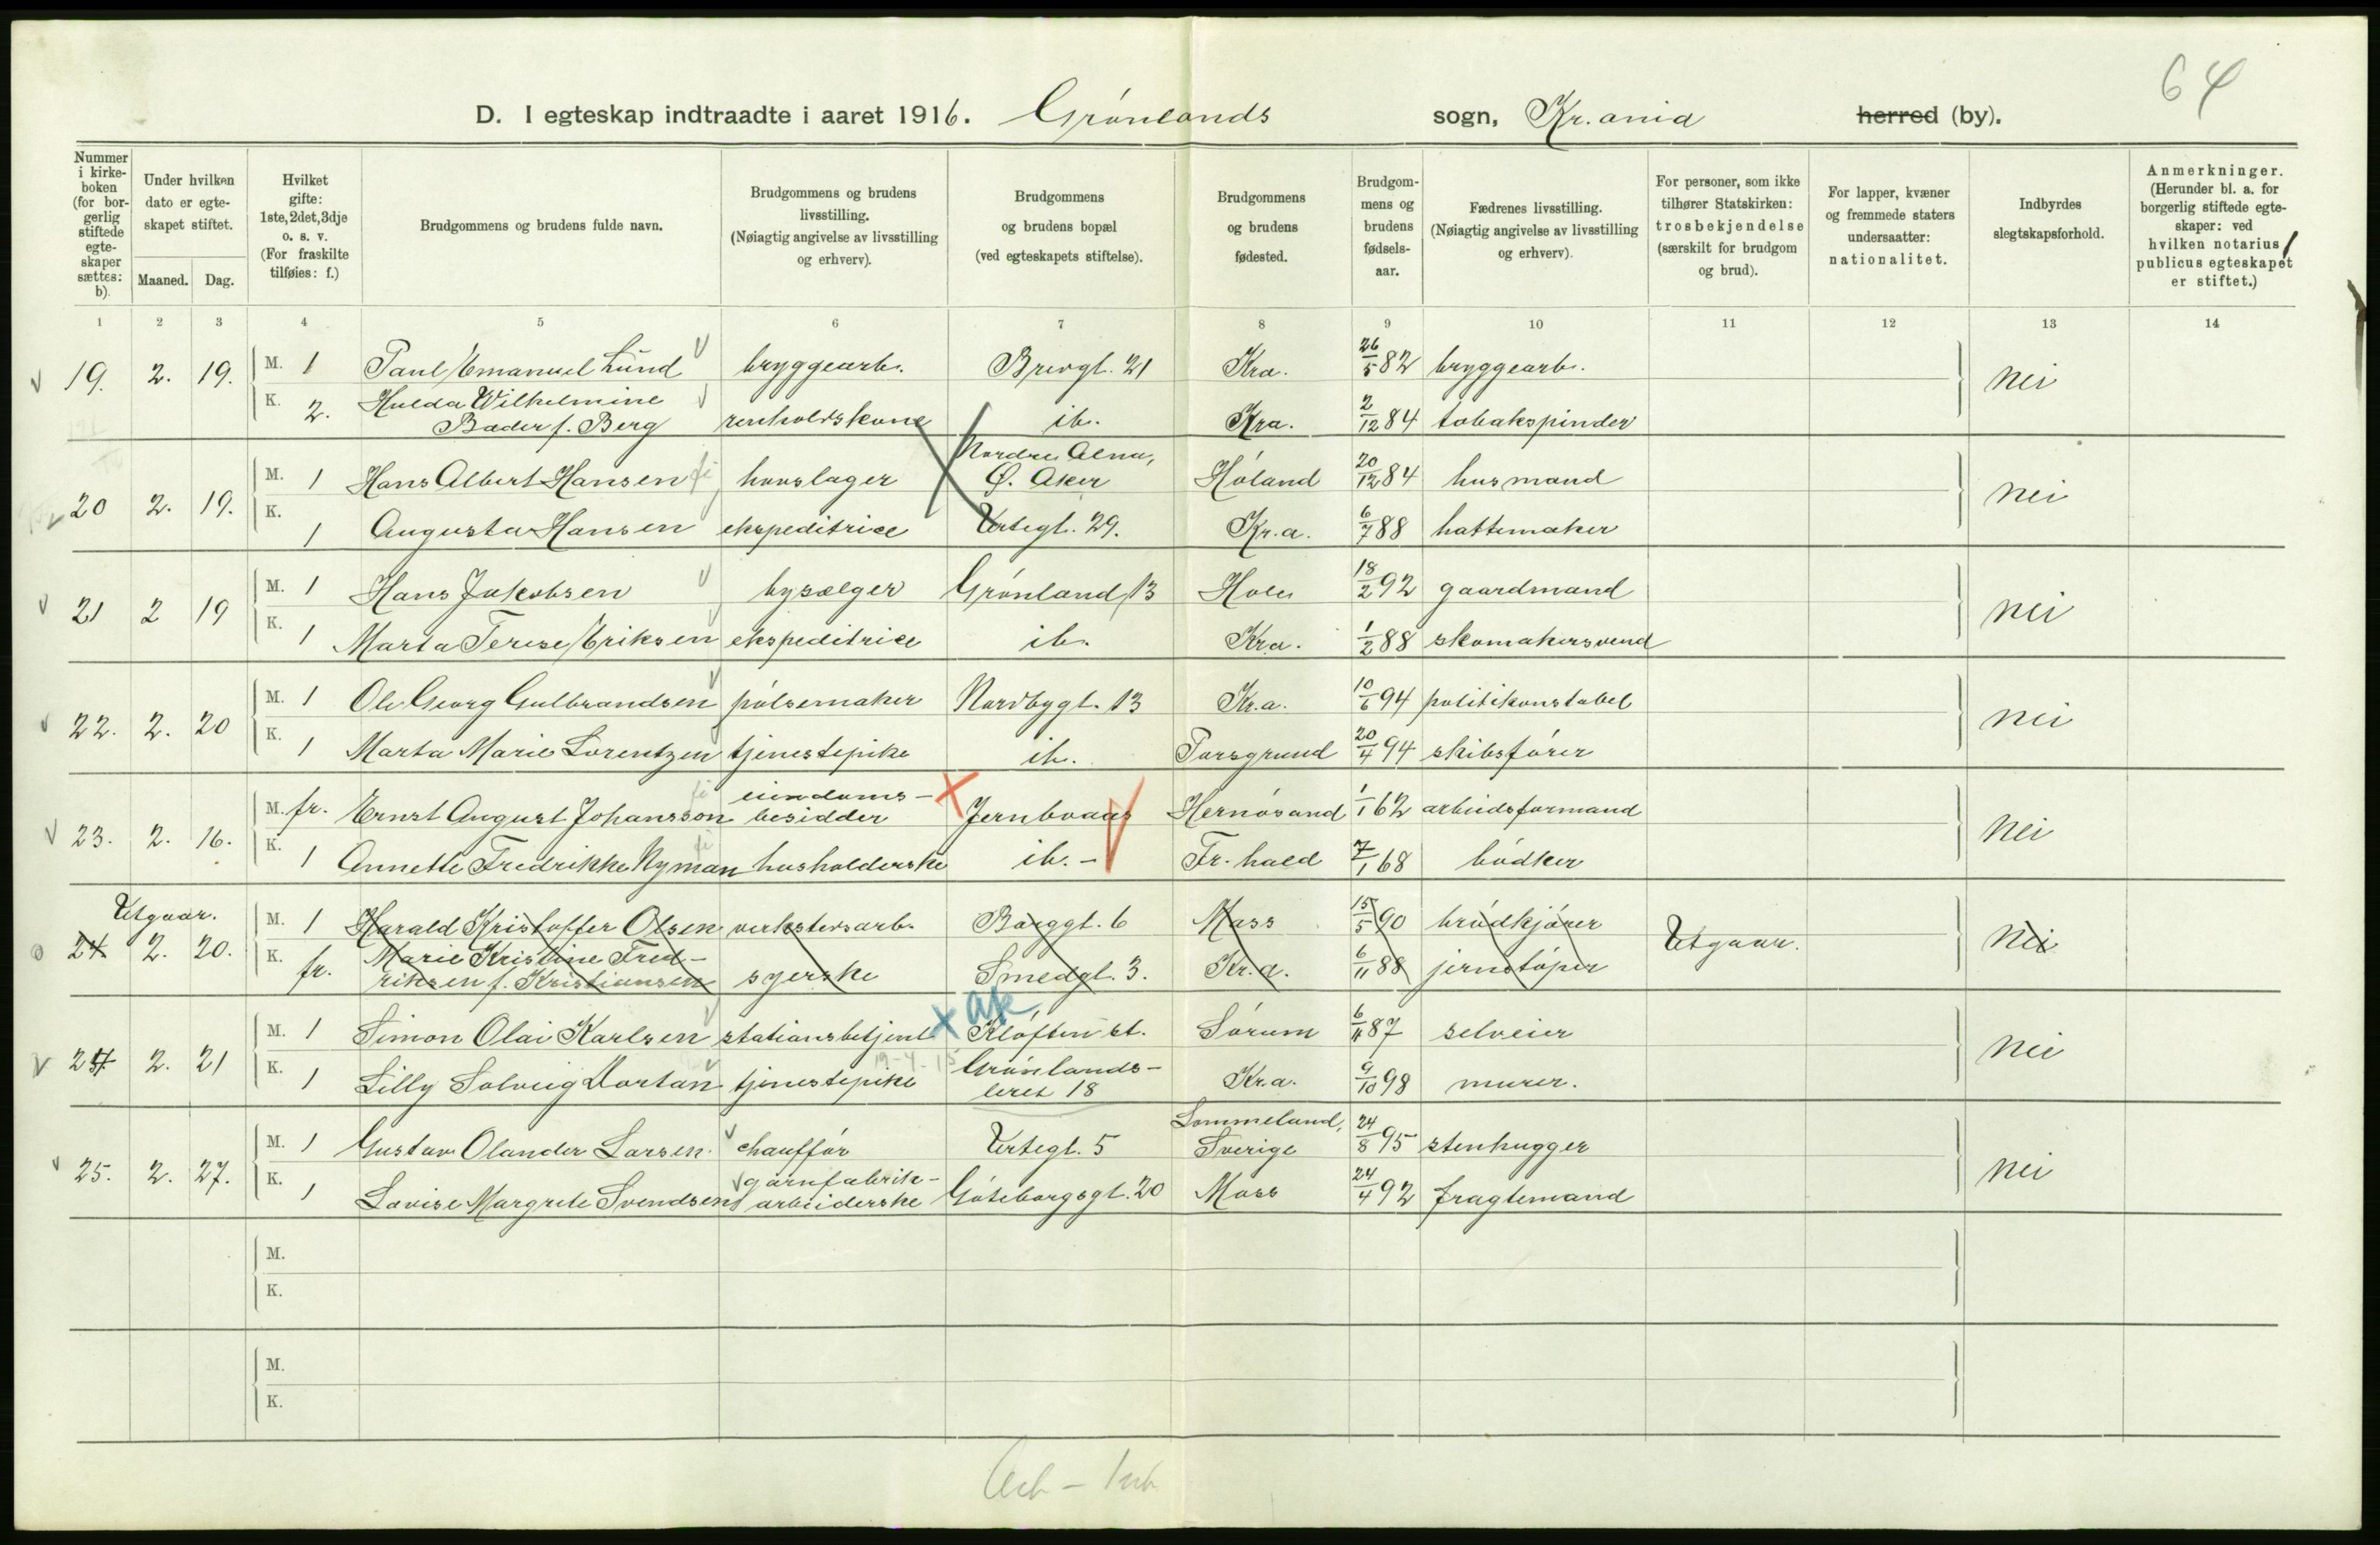 64
D. I egteskap indtraadte i aaret 1916. Grønlands sogn, Kr.ania herred (by).
Nummer i kirkeboken (for borgerlig stiftede egteskaper sættes: b).
Under hvilken dato er egteskapet stiftet.
Maaned. Dag.
Hvilket gifte: 1ste, 2det, 3dje o. s. v. (For fraskilte tilføies: f.)
Brudgommens og brudens fulde navn.
Brudgommens og brudens livsstilling. (Nøiagtig angivelse av livsstilling og erhverv).
Brudgommens og brudens bopæl (ved egteskapets stiftelse).
Brudgommens og brudens fødested.
Brudgommens og brudens fødselsaar.
Fædrenes livsstilling. (Nøiagtig angivelse av livsstilling og erhverv).
For personer, som ikke tilhører Statskirken: trosbekjendelse (særskilt for brudgom og brud).
For lapper, kvæner og fremmede staters undersaatter: nationalitet.
Indbyrdes slegtskapsforhold.
Anmerkninger. (Herunder bl. a. for borgerlig stiftede egteskaper: ved hvilken notarius publicus egteskapet er stiftet.)
1 2 3 4 5 6 7 8 9 10 11 12 13 14
19. 2. 19. M. 1 Paul Emanuel Lund bryggearb. Brevgt. 21 Kra. 26/5 82 bryggearb. nei
K. 2. Hulda Wilhelmine
Bader f. Berg renholdskone ib. Kra. 2/12 84 tobakspinder
Nordre Alna,
20 2. 19. M. 1 Hans Albert Hansen hovslager Ø. Aker Høland 20/12 84 husmand nei
K. 1 Augusta Hansen ekspeditrice Urtegt. 29. Kr.a. 6/7 88 hattemaker
21 2 19 M. 1 Hans Jakobsen bysælger Grønland 13 Hole 18/2 92 gaardmand nei
K. 1 Marta Terese Eriksen ekspeditrice ib. Kra. 1/2 88 skomakersvend
22. 2. 20 M. 1 Ole Georg Gulbrandsen pølsemaker Nordbygt. 13 Kr.a. 10/6 94 politikonstabel nei
K. 1 Marta Marie Lorentzen tjenestepike ib. Porsgrund 20/4 94 skibsfører
eiendoms-
23. 2. 16. M. fr. Ernst August Johansson besidder Jernbraas Hernøsand 1/1 62 arbeidsformand nei
K. 1 Annette Fredrikke Nyman husholderske ib. - Fr.hald 7/1 68 bødker
Utgaar.
24 2. 20. M. 1 Harald Kristoffer Olsen verkstedsarb. Borggt. 6 Moss 15/5 90 brødkjører Utgaar. nei
K. fr. Marie Kristine Fred-
riksen f. Kristiansen syerske Smedgt. 3. Kr.a. 6/11 88 jernstøper
AK
24 2. 21 M. 1 Simon Olai Karlsen stationsbetjent Kløften st. Sørum 6/11 87 selveier nei
19-4-15 Grønlands-
K. 1 Lilly Solveig Dortan tjenestepike leret 18 Kr.a. 9/10 98 murer.
Lommeland,
25. 2. 27. M. 1 Gustav Olander Larsen chauffør Urtegt. 5 Sverige 24/8 95 stenhugger nei
garnfabrik-
K. 1 Lovise Margrete Svendsen arbeiderske Gøteborggt. 20 Moss 24/4 92 fragtemand
M.
K.
M.
K.